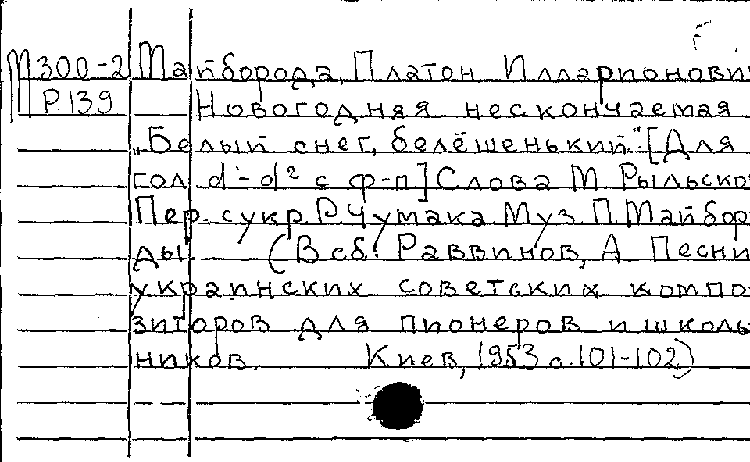 М300-2 Майборода, Платон Илларионович
Р139 Новогодняя нескончаемая
„Белый снег, белёшенький" [Для
гол. d¹-d² с ф-п] Слова М. Рыльско
Пер. с укр. Р. Чумака Муз. П. Майборо
ды. (В сб: Раввинов, А. Песни
украинских советских компо
зиторов для пионеров и школь
ников. Киев, 1953 с. 101-102)